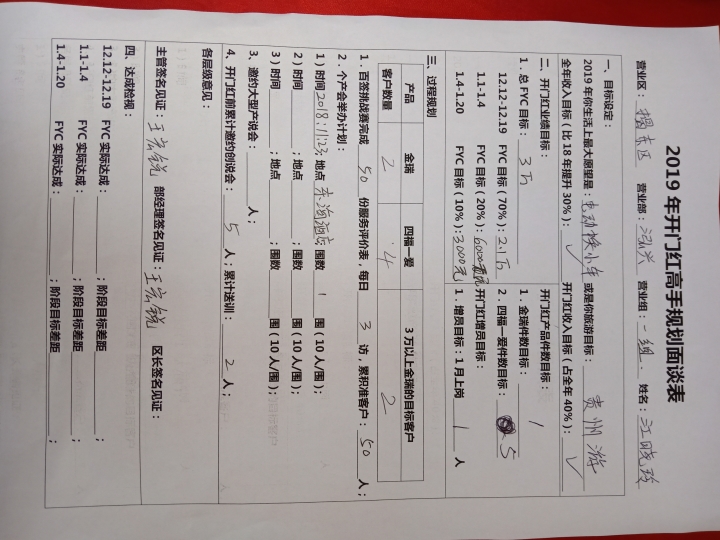 2019 年开门红高手规划面谈表
营业区：揭东区 营业部：泓兴 营业组：二组 姓名：江晓玲
一、目标设定：
2019 年你生活上最大愿望是：电动换小车 或是你旅游目标：贵州游
全年收入目标（比 18 年提升 30%）：✓ 开门红收入目标（占全年 40%）：✓
二、开门红业绩目标： 开门红产品件数目标：
1．总 FYC 目标：3万 1．金瑞件数目标：1
12.12-12.19 FYC 目标（70%）：2.1万 2．四福一爱件数目标：5
1.1-1.4 FYC 目标（20%）：6000元 开门红增员目标：
1.4-1.20 FYC 目标（10%）：3000元 1．增员目标：1 月上岗 1 人
三、过程规划
产品 金瑞 四福一爱 3 万以上金瑞的目标客户
客户数量 2 4 2
1．百签挑战赛完成 50 份服务评价表，每日 3 访，累积准客户：50 人；
2．个产会举办计划：
1）时间 2018.11.23 地点 东海酒店 围数 1 围（10 人/围）；
2）时间 ；地点 ；围数 围（10 人/围）；
3）时间 ；地点 ；围数 围（10 人/围）；
3、邀约大型产说会： 人；
4、开门红前累计邀约创说会： 5 人；累计送训： 2 人；
各层级意见：
主管签名见证：王宏锐 部经理签名见证：王宏锐 区长签名见证：
四、达成检视：
12.12-12.19 FYC 实际达成： ；阶段目标差距 ；
1.1-1.4 FYC 实际达成： ；阶段目标差距 ；
1.4-1.20 FYC 实际达成： ；阶段目标差距 ；